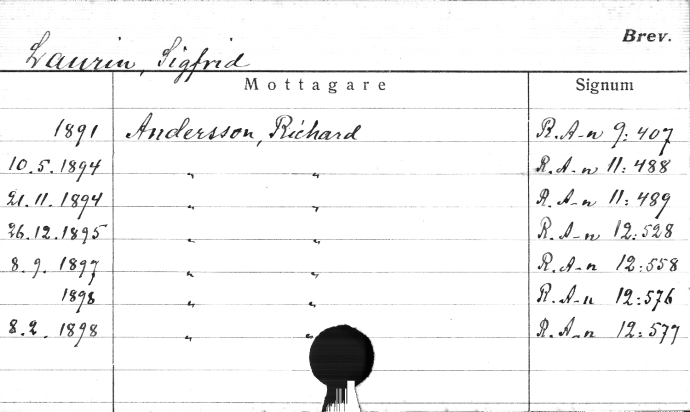 Brev.
Laurin, Sigfrid
Mottagare Signum
1891 Andersson, Richard R. A-n 9:407
10.5.1894 " " R. A-n 11:488
21.11.1894 " " R. A-n 11:489
26.12.1895 " " R. A-n 12:528
8.9.1897 " " R. A-n 12:558
1898 " " R. A-n 12:576
8.2.1898 " " R. A-n 12:577